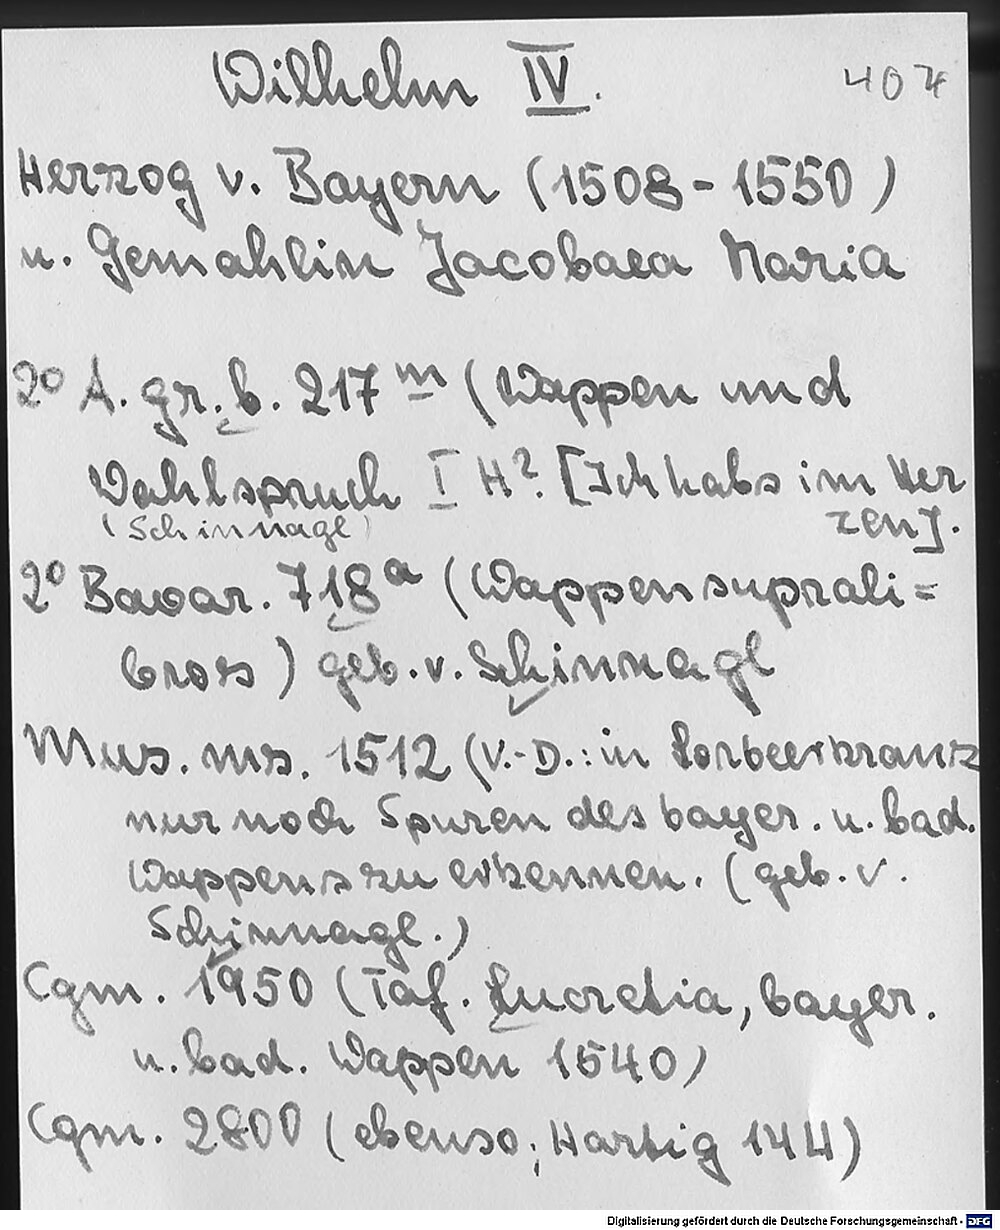 Wilhelm IV. 407
Herzog v. Bayern (1508-1550)
u. Gemahlin Jacobaea Maria
2° A. gr. b. 217 m (Wappen und
Wahlspruch I H? [Ich habs im Her
(Schinnagl) zen].
2° Bavar. 718 a (Wappensuprali=
bros) geb. v. Schinnagl
Mus. ms. 1512 (V.-D.: in Lorbeerkranz
nur noch Spuren des bayer. u. bad.
Wappens zu erkennen. (geb. v.
Schinnagl.)
Cgm. 1950 (Taf. Lucretia, bayer.
u. bad. Wappen 1540)
Cgm. 2800 (ebenso; Hartig 144)
Digitalisierung gefördert durch die Deutsche Forschungsgemeinschaft - DFG